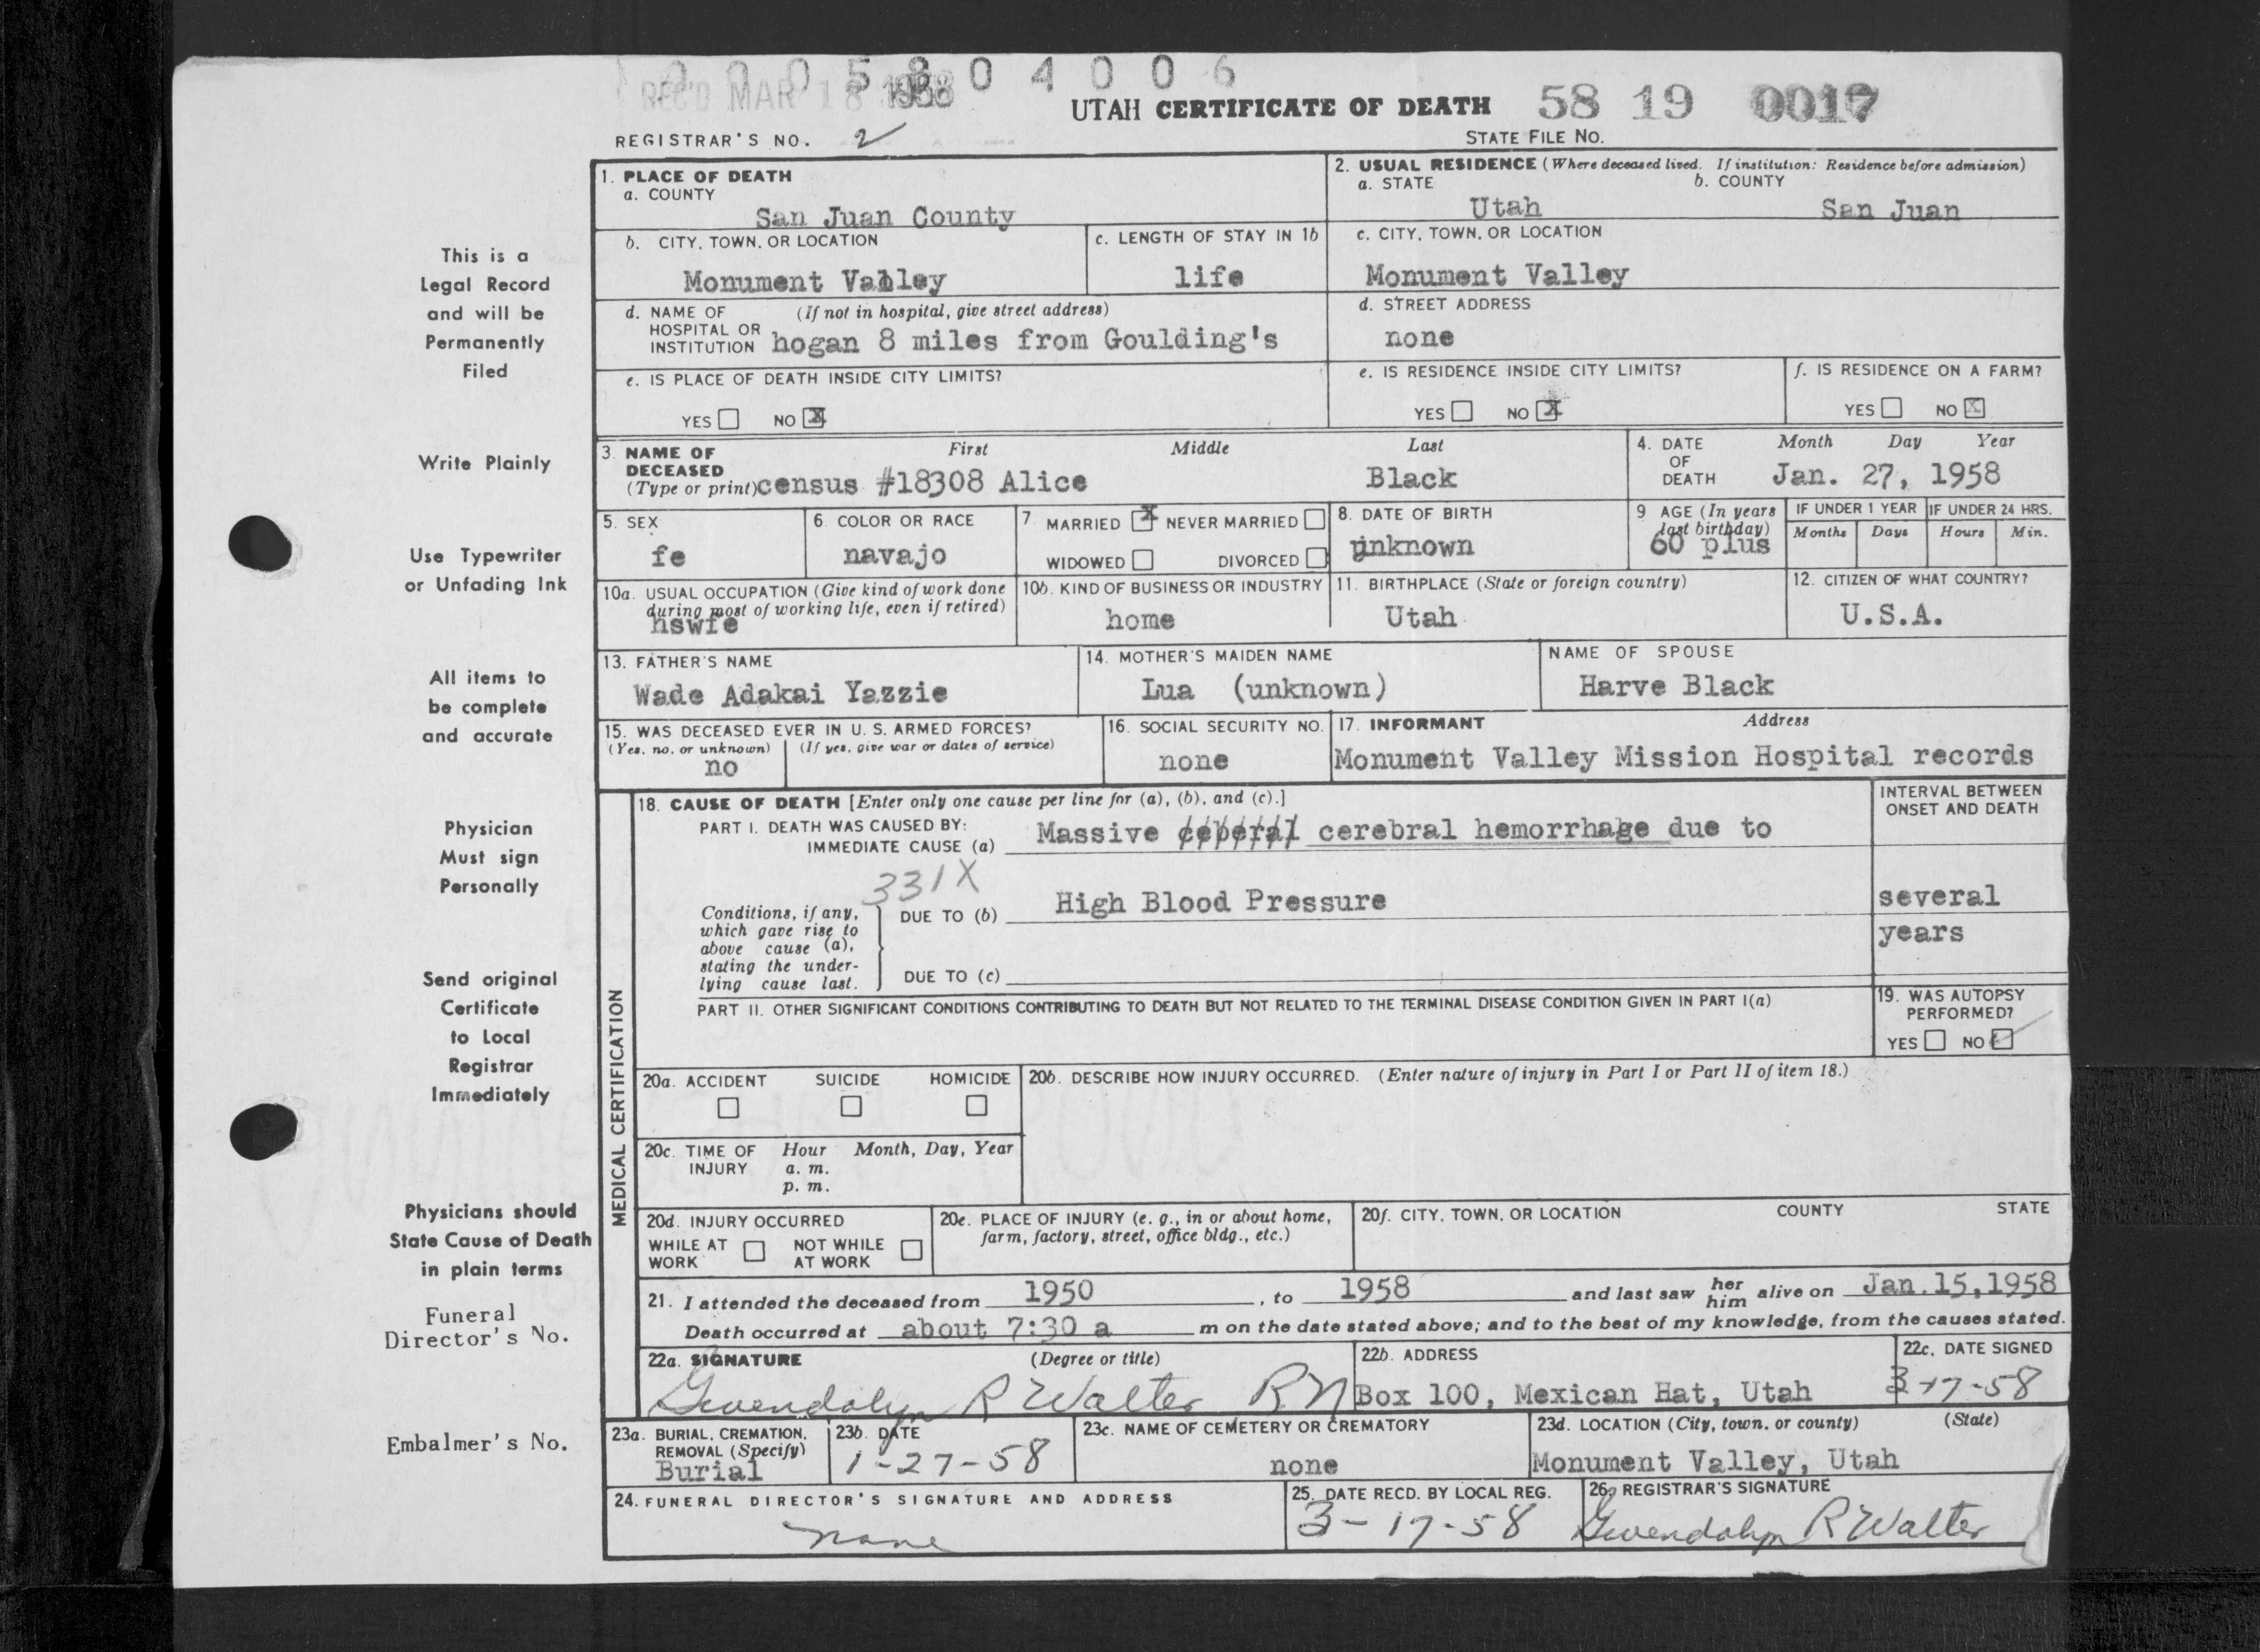 1 0 0 0 5 8 0 4 0 0 6
REC'D MAR 18 1958
UTAH CERTIFICATE OF DEATH 58 19 0017
REGISTRAR'S NO. 2
STATE FILE NO.
This is a
Legal Record
and will be
Permanently
Filed
Write Plainly
Use Typewriter
or Unfading Ink
All items to
be complete
and accurate
Physician
Must sign
Personally
Send original
Certificate
to Local
Registrar
Immediately
Physicians should
State Cause of Death
in plain terms
Funeral
Director's No.
Embalmer's No.
1. PLACE OF DEATH
a. COUNTY
San Juan County
2. USUAL RESIDENCE (Where deceased lived. If institution: Residence before admission)
a. STATE b. COUNTY
Utah San Juan
b. CITY, TOWN, OR LOCATION
Monument Valley
c. LENGTH OF STAY IN 1b
life
c. CITY, TOWN, OR LOCATION
Monument Valley
d. NAME OF (If not in hospital, give street address)
HOSPITAL OR
INSTITUTION hogan 8 miles from Goulding's
d. STREET ADDRESS
none
e. IS PLACE OF DEATH INSIDE CITY LIMITS?
YES NO X
e. IS RESIDENCE INSIDE CITY LIMITS?
YES NO X
f. IS RESIDENCE ON A FARM?
YES NO X
3. NAME OF First Middle Last
DECEASED
(Type or print) census #18308 Alice Black
4. DATE Month Day Year
OF
DEATH Jan. 27, 1958
5. SEX
fe
6. COLOR OR RACE
navajo
7. MARRIED X NEVER MARRIED
WIDOWED DIVORCED
8. DATE OF BIRTH
unknown
9 AGE (In years
last birthday)
60 plus
IF UNDER 1 YEAR
Months Days
IF UNDER 24 HRS.
Hours Min.
10a. USUAL OCCUPATION (Give kind of work done
during most of working life, even if retired)
hswfe
10b. KIND OF BUSINESS OR INDUSTRY
home
11. BIRTHPLACE (State or foreign country)
Utah
12. CITIZEN OF WHAT COUNTRY?
U.S.A.
13. FATHER'S NAME
Wade Adakai Yazzie
14. MOTHER'S MAIDEN NAME
Lua (unknown)
NAME OF SPOUSE
Harve Black
15. WAS DECEASED EVER IN U. S. ARMED FORCES?
(Yes, no, or unknown) (If yes, give war or dates of service)
no
16. SOCIAL SECURITY NO.
none
17. INFORMANT Address
Monument Valley Mission Hospital records
MEDICAL CERTIFICATION
18. CAUSE OF DEATH [Enter only one cause per line for (a), (b), and (c).]
PART I. DEATH WAS CAUSED BY:
IMMEDIATE CAUSE (a) Massive ceberal cerebral hemorrhage due to
331X
Conditions, if any,
which gave rise to
above cause (a),
stating the under-
lying cause last.
DUE TO (b) High Blood Pressure
DUE TO (c)
INTERVAL BETWEEN
ONSET AND DEATH
several
years
PART II. OTHER SIGNIFICANT CONDITIONS CONTRIBUTING TO DEATH BUT NOT RELATED TO THE TERMINAL DISEASE CONDITION GIVEN IN PART I(a)
19. WAS AUTOPSY
PERFORMED?
YES NO ✓
20a. ACCIDENT SUICIDE HOMICIDE
20b. DESCRIBE HOW INJURY OCCURRED. (Enter nature of injury in Part I or Part II of item 18.)
20c. TIME OF Hour Month, Day, Year
INJURY a. m.
p. m.
20d. INJURY OCCURRED
WHILE AT NOT WHILE
WORK AT WORK
20e. PLACE OF INJURY (e. g., in or about home,
farm, factory, street, office bldg., etc.)
20f. CITY, TOWN, OR LOCATION COUNTY STATE
21. I attended the deceased from 1950, to 1958 and last saw her him alive on Jan.15,1958
Death occurred at about 7:30 a m on the date stated above; and to the best of my knowledge, from the causes stated.
22a. SIGNATURE (Degree or title)
Gwendolyn R Walter RN
22b. ADDRESS
Box 100, Mexican Hat, Utah
22c. DATE SIGNED
3-17-58
23a. BURIAL, CREMATION,
REMOVAL (Specify)
Burial
23b. DATE
1-27-58
23c. NAME OF CEMETERY OR CREMATORY
none
23d. LOCATION (City, town, or county) (State)
Monument Valley, Utah
24. FUNERAL DIRECTOR'S SIGNATURE AND ADDRESS
none
25. DATE RECD. BY LOCAL REG.
3-17-58
26. REGISTRAR'S SIGNATURE
Gwendolyn R Walter